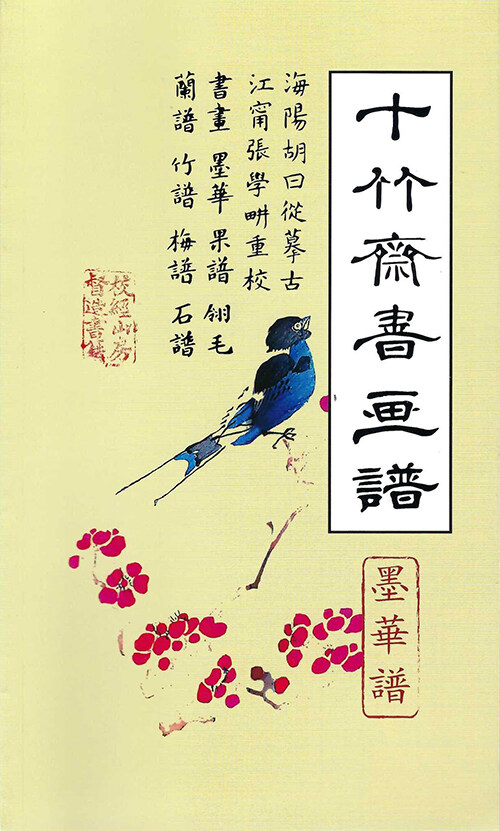 十竹齋書画譜
墨華譜
海陽胡曰從摹古
江甯張學畊重校
書畫 墨華 果譜 翎毛
蘭譜 竹譜 梅譜 石譜
校經山房
督造書籍